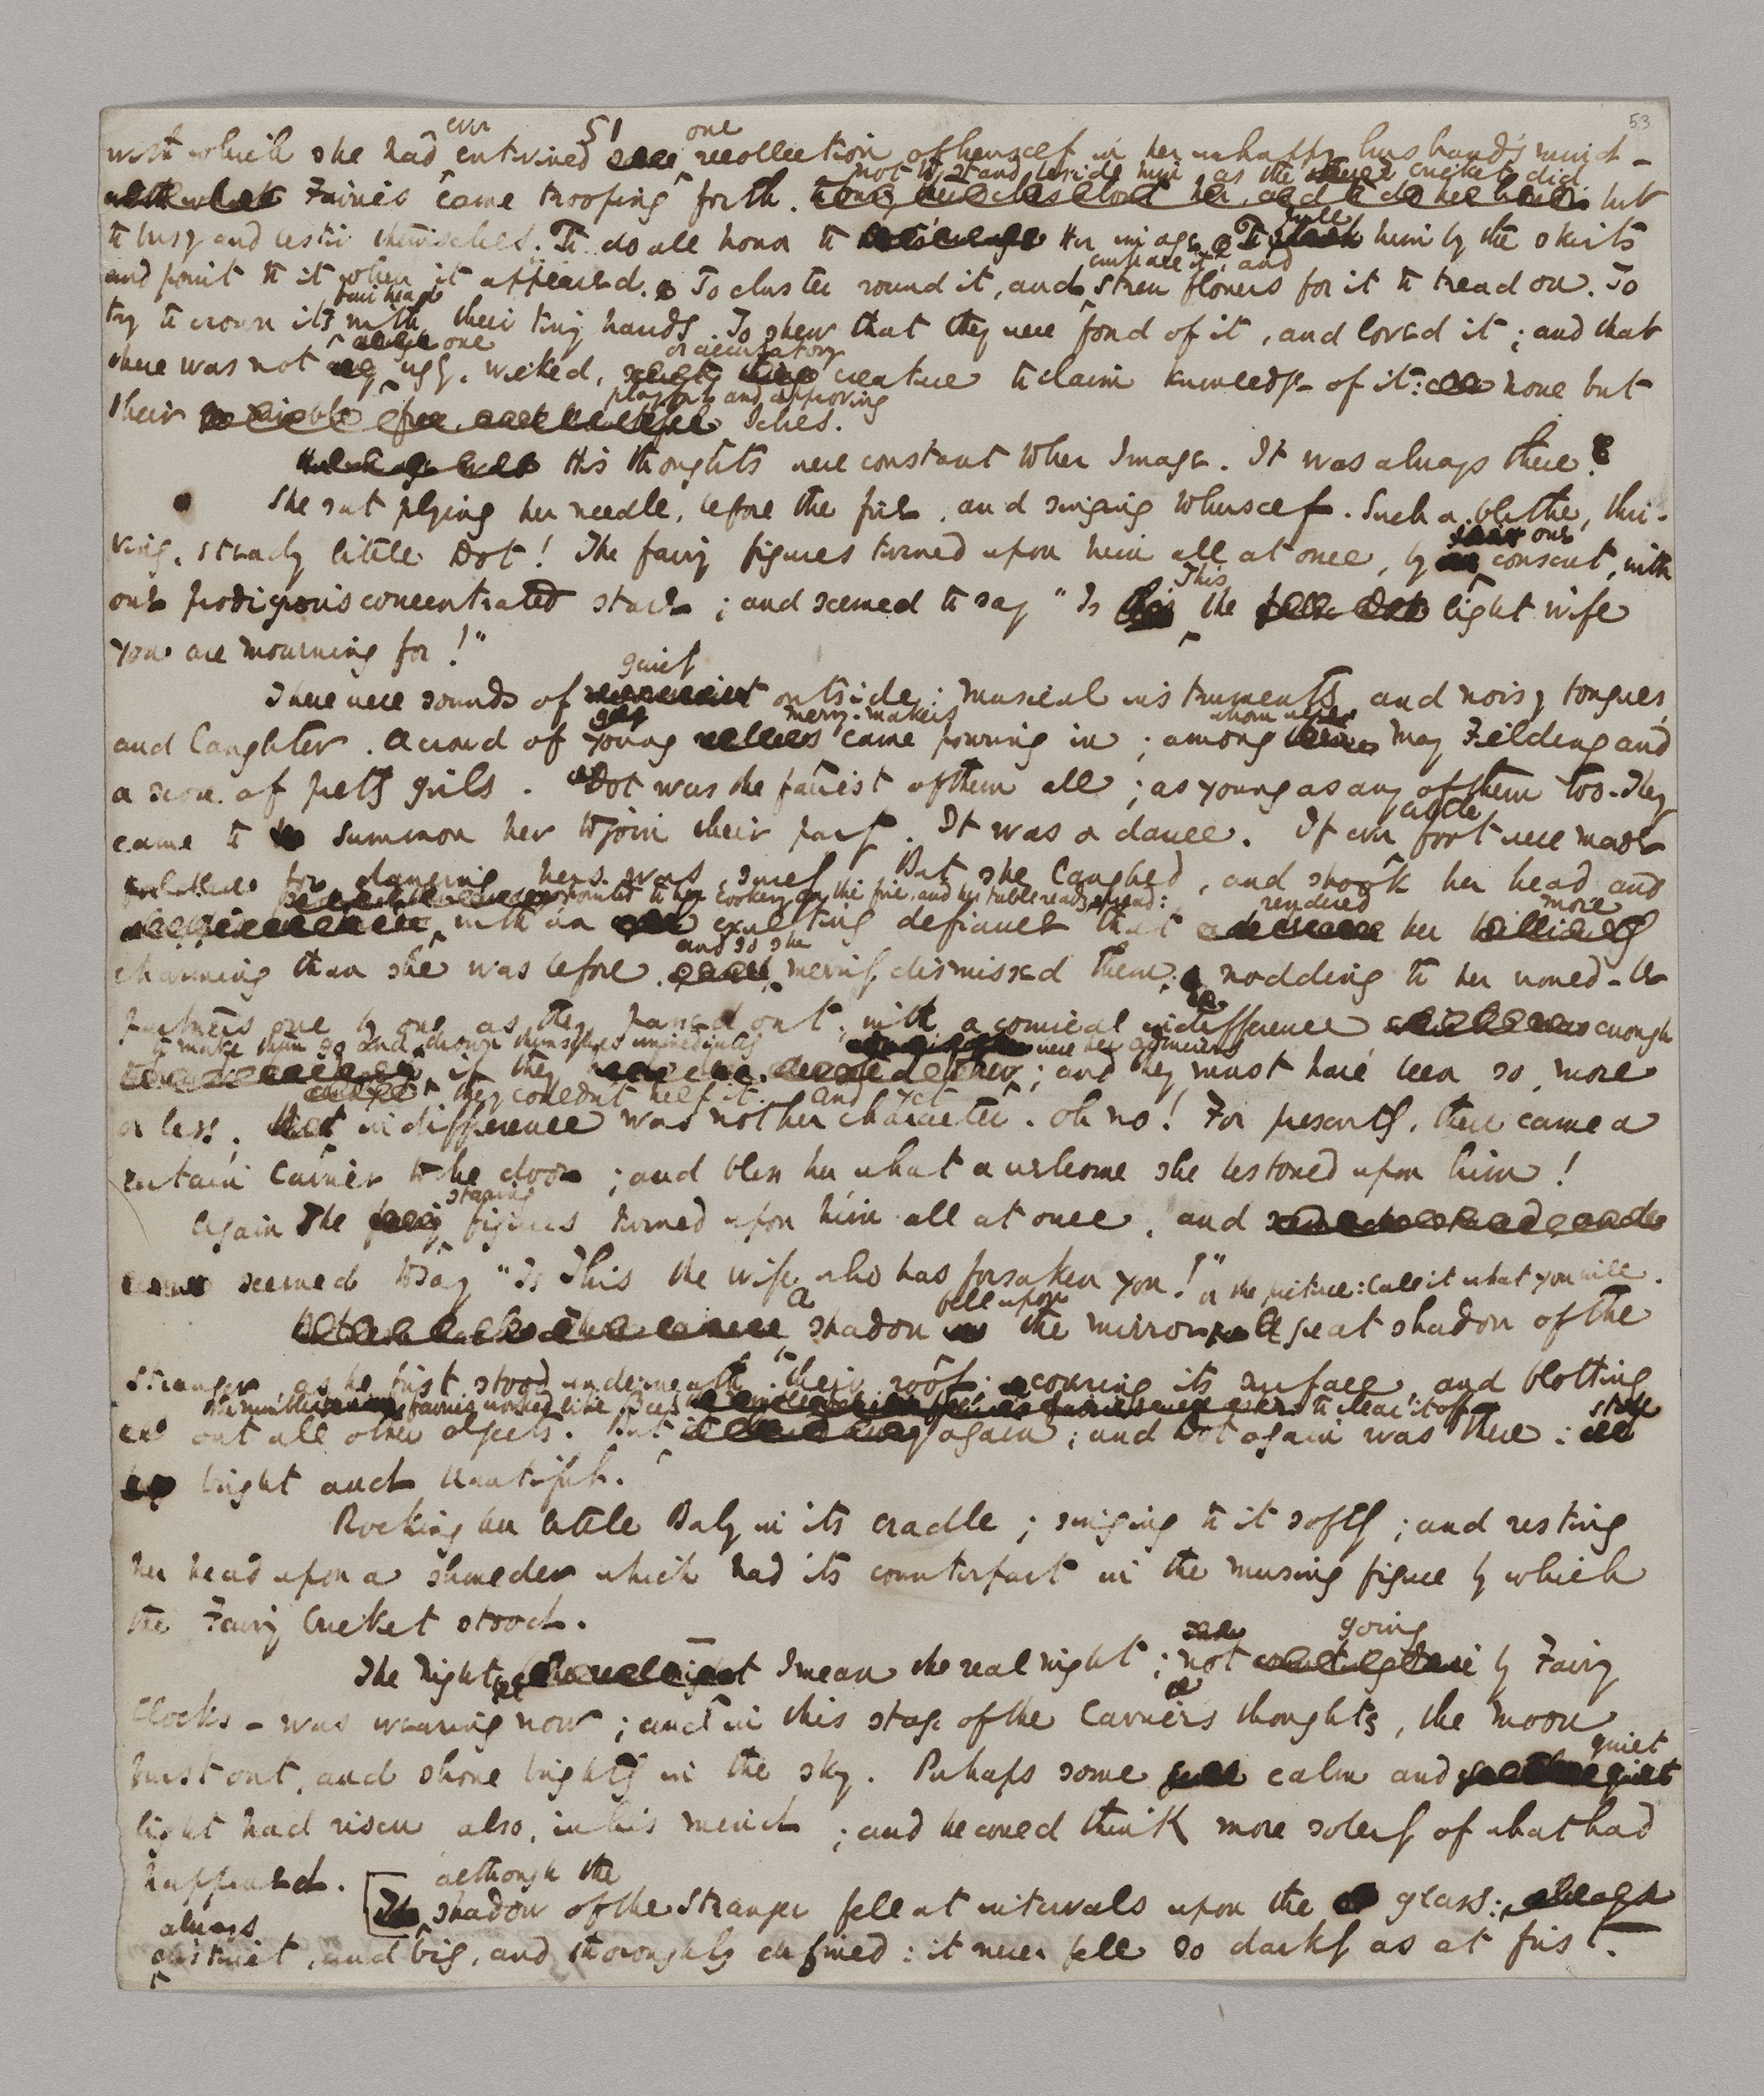 53
51
with which she had ever entwined one recollection of herself in her unhappy husband's mind -
Fairies came trooping forth. not to stand beside him as the Cricket did but
to busy and bestir themselves. To do all honor to Her image. To pull him by the skirts
and point to it when it appeared. To cluster round it, and embrace it, and strew flowers for it to tread on. To
try to crown its fair head with their tiny hands. To shew that they were fond of it, and loved it; and that
there was not one ugly, wicked, or accusatory creature to claim knowledge of it: none but
their playful and approving selves.
His thoughts were constant to her Image. It was always there.
She sat plying her needle, before the fire, and singing to herself. Such a blithe, thri-
ving, steady little Dot! The fairy figures turned upon him all at once, by one consent, with
one prodigious concentrated stare; and seemed to say "Is This the light wife
you are mourning for!"
There were sounds of gaiety outside: musical instruments, and noisy tongues,
and laughter. A crowd of young merry-makers came pouring in; among whom were May Fielding and
a score of pretty girls. Dot was the fairest of them all; as young as any of them too. They
came to summon her to join their party. It was a dance. If ever little foot were made
for dancing, hers was, surely. But she laughed, and shook her head, and
pointed to her cookery on the fire, and her table ready spread:
with an exulting defiance that rendered her more
charming than she was before. and so she merrily dismissed them: nodding to her would-be
partners one by one as they passed out, with a comical indifference enough
to make them go and drown themselves immediately if they were her admirers; and they must have been so, more
or less; they couldn't help it. and yet indifference was not her character. Oh no! For presently, there came a
certain Carrier to the door; and bless her what a welcome she bestowed upon him!
Again the staring figures turned upon him all at once, and
seemed to say "Is This the wife who has forsaken you!"
A shadow fell upon the mirror or the picture: call it what you will. A great shadow of the
Stranger, as he first stood underneath their roof: covering its surface, and blotting
out all other objects. But the nimble fairies worked like Bees to clear it off again; and Dot again was there: still
bright and beautiful.
Rocking her little Baby in its cradle; singing to it softly; and resting
her head upon a shoulder which had its counterpart in the musing figure by which
the Fairy Cricket stood.
The night - I mean the real night; not going by Fairy
Clocks - was wearing now; and in this stage of the Carrier's thoughts, the moon
burst out, and shone brightly in the sky. Perhaps some calm and quiet
light had risen also, in his mind; and he could think more soberly of what had
happened.
although the shadow of the Stranger fell at intervals upon the glass:
always distinct, and big, and thoroughly defined: it never fell so darkly as at first.